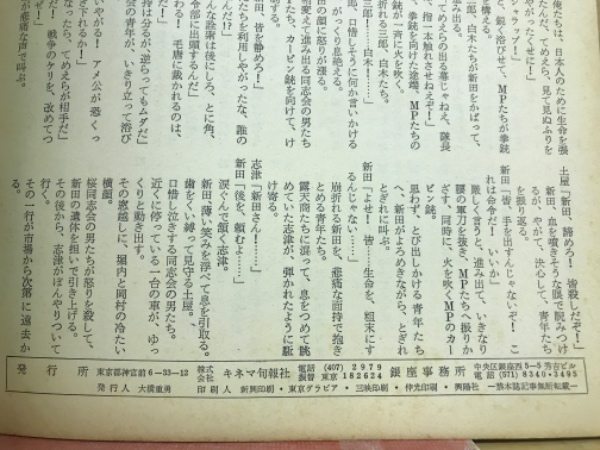 俺たちは、日本人のために生命を張
ったんだ。てめえら、見て見ぬふりを
やがったくせに！」
シャラップ！」
と、鋭く浴びせて、MPたちが拳銃
構える。
三郎、白木たちが新田をかばって、
み出る。
てめえらの出る幕じゃねえ、隊長
、指一本触れさせねえぞ！」
銃が一斉に火を吹く。
折れる三郎、白木たち。
三郎！……白木！……」
郎、口惜しそうに何か言いかける
、がっくり息絶える。
田の顔に怒りが漲る。
相変えて進み出る同志会の男たち
たち、カービン銃を向けて、け
田、皆を静めろ！」
たちを利用しやがったな、誰の
んな詮索は後にしろ、とに角、
令部に出頭するんだ」
わる！　毛唐に裁かれるのは、
持は分るが、逆らってもムダだ」
会の青年が、いきり立って浴び
いやがる！　アメ公が恐くっ
なったら、てめえらが相手だ」
！　戦争のケリを、改めてつ
ぜ！」
が悲痛な声で叫ぶ。
土屋「新田、諦めろ！　皆殺しだぞ！」
新田、血を噴きそうな眼で睨みつけ
るが、やがて、決心して、青年たち
を振り返る。
新田「皆、手を出すんじゃないぞ！　こ
れは命令だ！　いいか」
厳しく言うと、進み出て、いきなり
腰の軍刀を抜き、MPたちへ振りか
ざす、同時に、火を吹くMPのカー
ビン銃。
思わず、とび出しかける青年たち
へ、新田がよろめきながら、とぎれ
とぎれに叫ぶ。
新田「よせ！　皆……生命を、粗末にす
るんじゃない……」
崩折れる新田を、悲痛な面持で抱き
とめる青年たち。
露天商たちに混って、息をつめて眺
めていた志津が、弾かれたように駈
け寄る。
志津「新田さん！……」
新田「後を、頼むよ……」
涙ぐんで頷く志津。
新田、薄い笑みを浮べて息を引取る。
歯をくい縛って見守る土屋。
口惜し泣きする同志会の男たち。
近くに停っている一台の車が、ゆっ
くりと動き出す。
その窓越しに、堀内と岡村の冷たい
横顔。
桜同志会の男たちが怒りを殺して、
新田の遺体を担いで引き上げる。
その後から、志津がぼんやりついて
行く。
その一行が市場から次第に遠去か
る。
発行所　東京都神宮前6－33－12　株式会社　キネマ旬報社　電話(407)2979　振替東京182624　銀座事務所　中央区銀座西5－5秀吉ビル　電話(571)8340・3495
発行人　大橋重勇　印刷人　新興印刷・東京グラビア・三映印刷・伸光印刷・興陽社　―禁本誌記事無断転載―